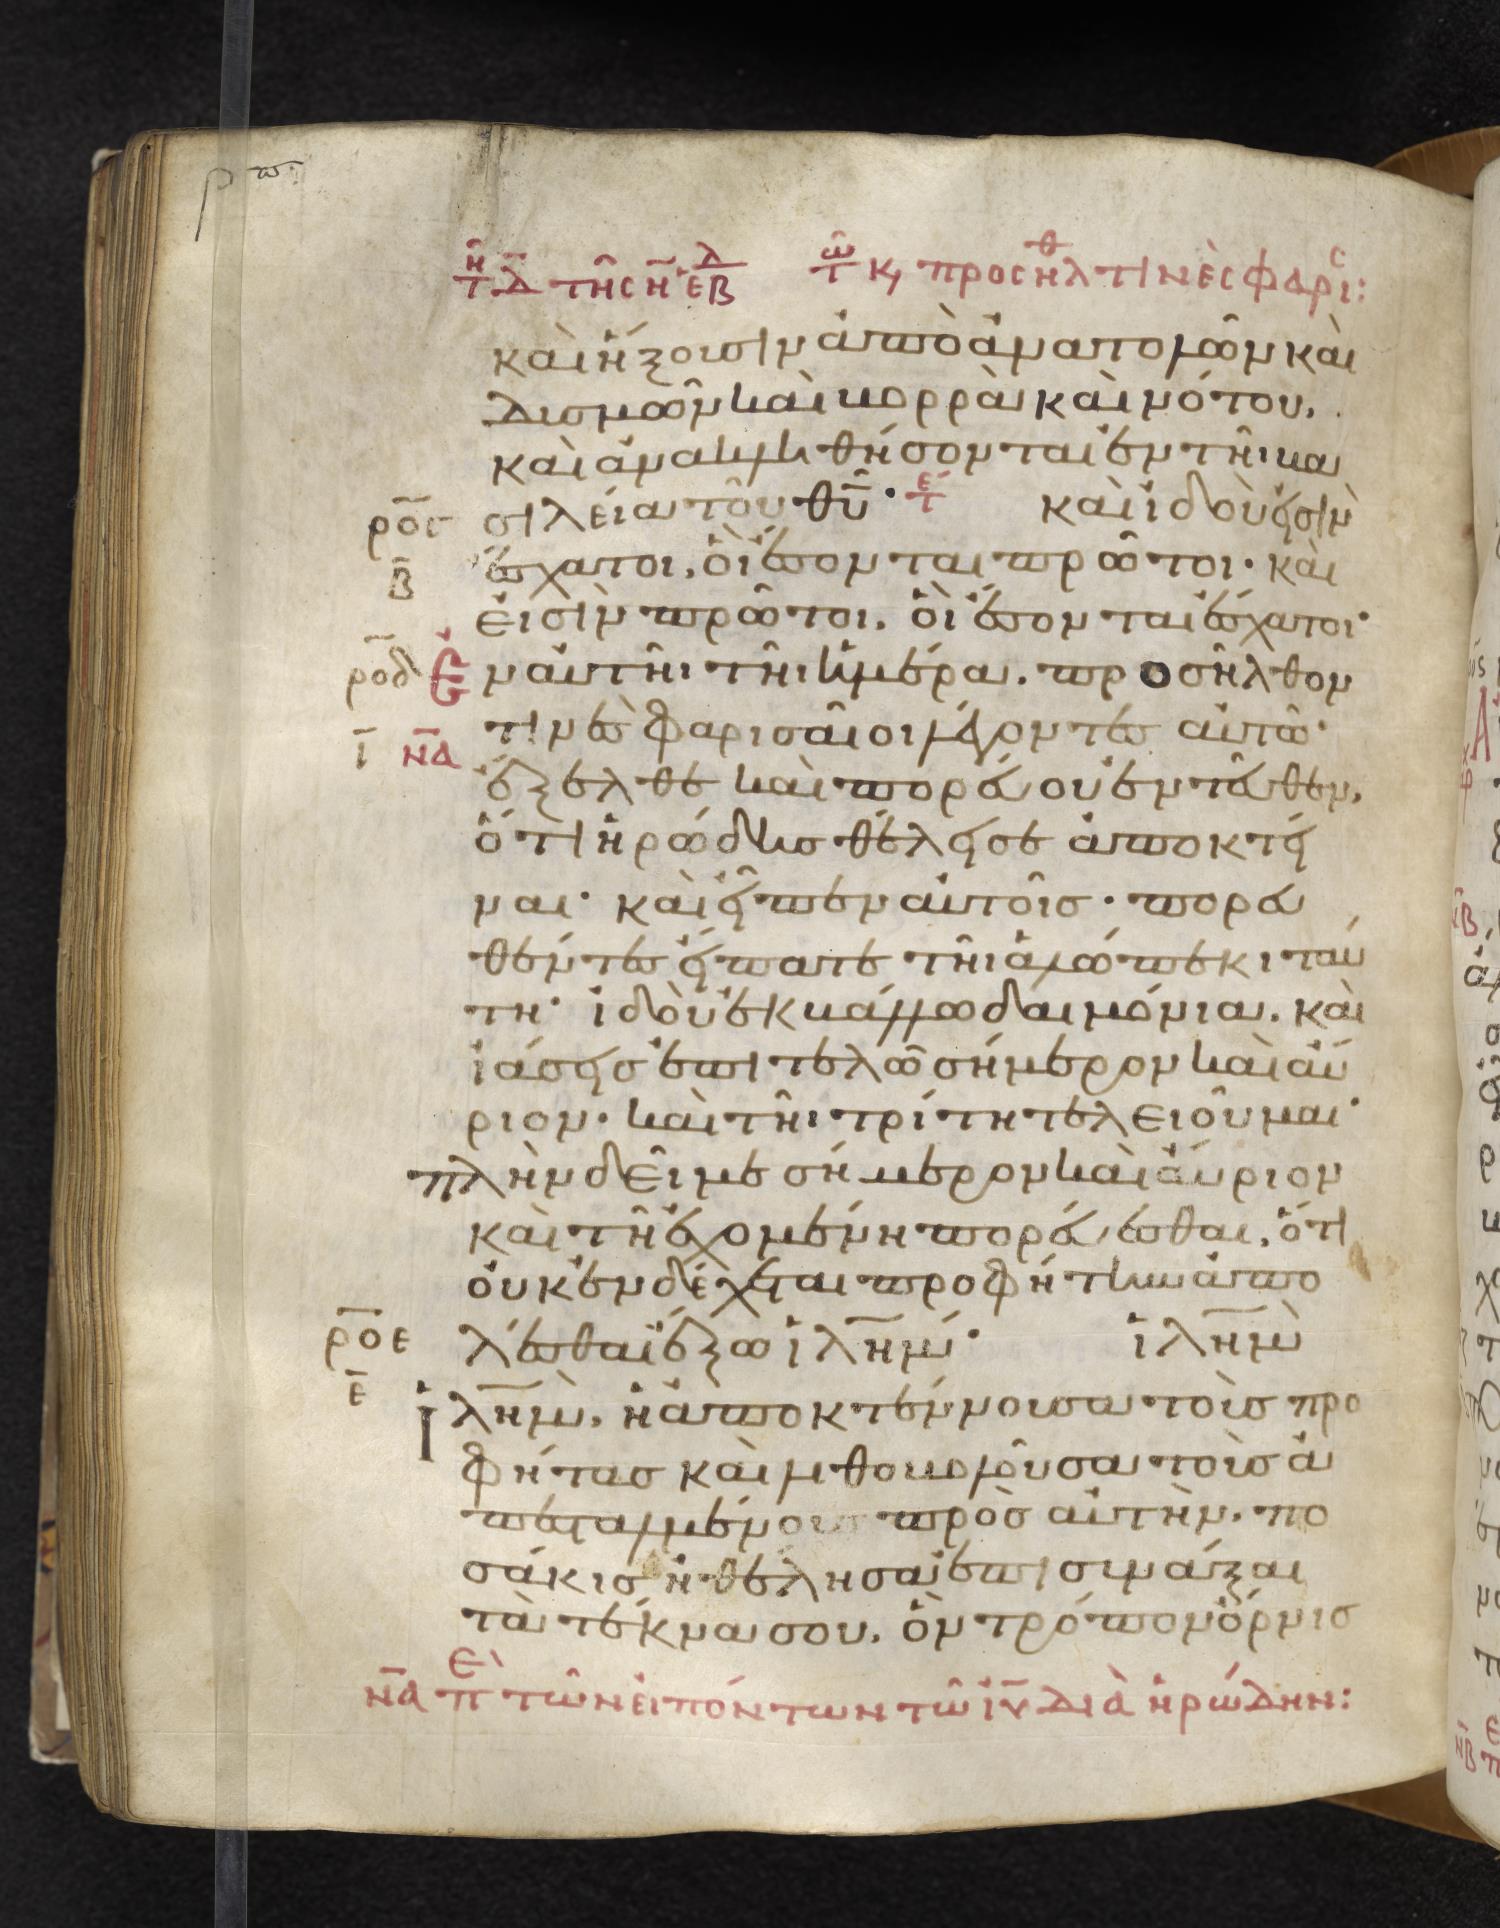 τῇ δ τῆς η ἑβδ τῷ κ, προσῆλθ τινὲς φαρισ:
καὶ ἥξουσιν ἀπὸ ἀνατολῶν καὶ
δυσμῶν καὶ βορρᾶ καὶ νότου,
καὶ ἀνακλιθήσονται ἐν τῆι βα
ροϛ σιλεία τοῦ θῡ· τε καὶ ἰδοὺ εἰσὶν
β ἔσχατοι, οἳ ἔσονται πρῶτοι· καὶ
εἰσὶν πρῶτοι, οἳ ἔσονται ἔσχατοι·
ροδ Ἐν αὐτῆι τῆι ἡμέρα, προσῆλθον
ι να τινὲς φαρισαῖοι λέγοντες αὐτῶ·
ἔξελθε καὶ πορεύου ἐντεῦθεν,
ὅτι ἡρώδης θέλει σε ἀποκτεῖ
ναι· καὶ εἶπεν αὐτοῖς· πορευ
θέντες εἴπατε τῆι ἀλώπεκι ταύ
τη· ἰδοὺ ἐκβάλλω δαιμόνια, καὶ
ἰάσεις ἐπιτελῶ σήμερον καὶ αὔ
ριον· καὶ τῆι τρίτη τελειοῦμαι·
πλὴν δεῖ με σήμερον καὶ αὔριον
καὶ τῆ ἐχομένη πορεύεσθαι, ὅτι
οὐκ ἐνδέχεται προφήτην ἀπο
ροε λέσθαι ἔξω ἱλη̄μ· ἱλη̄μ
ε ἱλη̄μ, ἡ ἀποκτέννουσα τοὺς προ
φήτας καὶ λιθοβολοῦσα τοὺς ἀ
πεσταλμένους πρὸς αὐτὴν, πο
σάκις ἠθέλησα ἐπισυνάξαι
τὰ τέκνα σου, ὃν τρόπον ὄρνις
να πε τῶν εἰπόντων τῶ ἰῡ διὰ ἡρώδην: